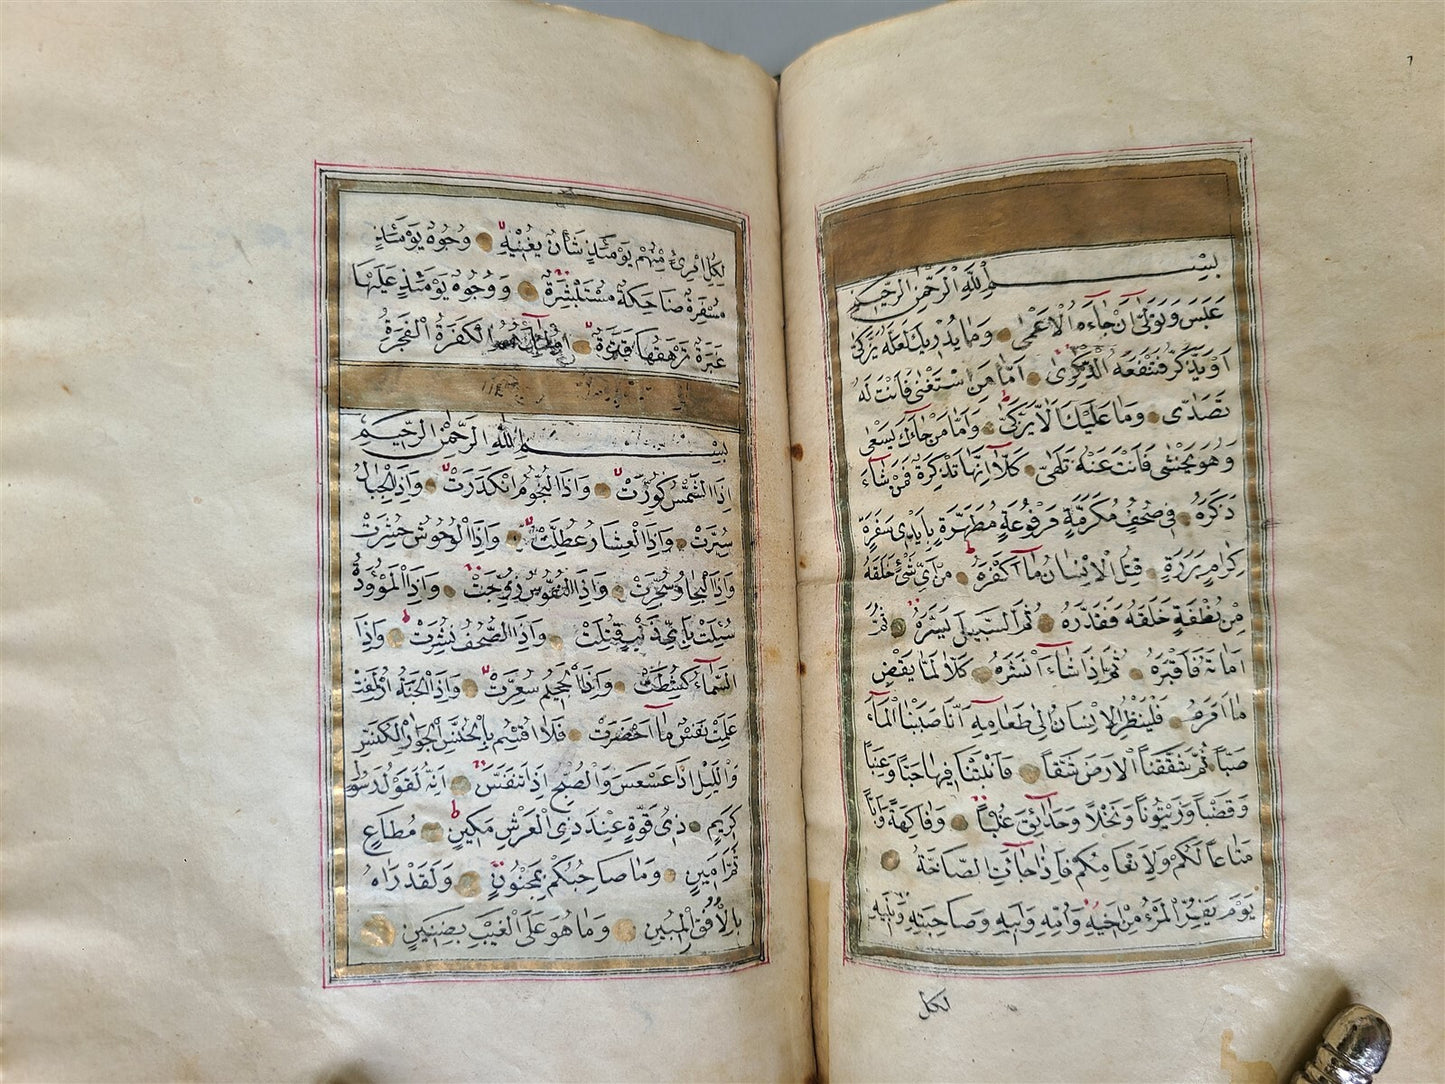 بِسْمِ اللهِ الرَّحْمٰنِ الرَّحِيمِ
عَبَسَ وَتَوَلّٰى اَنْ جَاءَهُ الْاَعْمٰى وَمَا يُدْرِيكَ لَعَلَّهُ يَزَّكّٰى
اَوْ يَذَّكَّرُ فَتَنْفَعَهُ الذِّكْرٰى اَمَّا مَنِ اسْتَغْنٰى فَاَنْتَ لَهُ
تَصَدّٰى وَمَا عَلَيْكَ اَلَّا يَزَّكّٰى وَاَمَّا مَنْ جَاءَكَ يَسْعٰى
وَهُوَ يَخْشٰى فَاَنْتَ عَنْهُ تَلَهّٰى كَلَّا اِنَّهَا تَذْكِرَةٌ فَمَنْ شَاءَ
ذَكَرَهُ فِى صُحُفٍ مُكَرَّمَةٍ مَرْفُوعَةٍ مُطَهَّرَةٍ بِاَيْدِى سَفَرَةٍ
كِرَامٍ بَرَرَةٍ قُتِلَ الْاِنْسَانُ مَا اَكْفَرَهُ مِنْ اَىِّ شَىْءٍ خَلَقَهُ
مِنْ نُطْفَةٍ خَلَقَهُ فَقَدَّرَهُ ثُمَّ السَّبِيلَ يَسَّرَهُ ثُمَّ
اَمَاتَهُ فَاَقْبَرَهُ ثُمَّ اِذَا شَاءَ اَنْشَرَهُ كَلَّا لَمَّا يَقْضِ
مَا اَمَرَهُ فَلْيَنْظُرِ الْاِنْسَانُ اِلٰى طَعَامِهِ اَنَّا صَبَبْنَا الْمَاءَ
صَبًّا ثُمَّ شَقَقْنَا الْاَرْضَ شَقًّا فَاَنْبَتْنَا فِيهَا حَبًّا وَعِنَبًا
وَقَضْبًا وَزَيْتُونًا وَنَخْلًا وَحَدَائِقَ غُلْبًا وَفَاكِهَةً وَاَبًّا
مَتَاعًا لَكُمْ وَلِاَنْعَامِكُمْ فَاِذَا جَاءَتِ الصَّاخَّةُ
يَوْمَ يَفِرُّ الْمَرْءُ مِنْ اَخِيهِ وَاُمِّهِ وَاَبِيهِ وَصَاحِبَتِهِ وَبَنِيهِ
لكل
لِكُلِّ امْرِئٍ مِنْهُمْ يَوْمَئِذٍ شَأْنٌ يُغْنِيهِ وُجُوهٌ يَوْمَئِذٍ
مُسْفِرَةٌ ضَاحِكَةٌ مُسْتَبْشِرَةٌ وَوُجُوهٌ يَوْمَئِذٍ عَلَيْهَا
غَبَرَةٌ تَرْهَقُهَا قَتَرَةٌ الْكَفَرَةُ الْفَجَرَةُ
بِسْمِ اللهِ الرَّحْمٰنِ الرَّحِيمِ
اِذَا الشَّمْسُ كُوِّرَتْ وَاِذَا النُّجُومُ انْكَدَرَتْ وَاِذَا الْجِبَالُ
سُيِّرَتْ وَاِذَا الْعِشَارُ عُطِّلَتْ وَاِذَا الْوُحُوشُ حُشِرَتْ
وَاِذَا الْبِحَارُ سُجِّرَتْ وَاِذَا النُّفُوسُ زُوِّجَتْ وَاِذَا الْمَوْؤُدَةُ
سُئِلَتْ بِاَىِّ ذَنْبٍ قُتِلَتْ وَاِذَا الصُّحُفُ نُشِرَتْ وَاِذَا
السَّمَاءُ كُشِطَتْ وَاِذَا الْجَحِيمُ سُعِّرَتْ وَاِذَا الْجَنَّةُ اُزْلِفَتْ
عَلِمَتْ نَفْسٌ مَا اَحْضَرَتْ فَلَا اُقْسِمُ بِالْخُنَّسِ الْجَوَارِ الْكُنَّسِ
وَالَّيْلِ اِذَا عَسْعَسَ وَالصُّبْحِ اِذَا تَنَفَّسَ اِنَّهُ لَقَوْلُ رَسُولٍ
كَرِيمٍ ذِى قُوَّةٍ عِنْدَ ذِى الْعَرْشِ مَكِينٍ مُطَاعٍ
ثَمَّ اَمِينٍ وَمَا صَاحِبُكُمْ بِمَجْنُونٍ وَلَقَدْ رَاٰهُ
بِالْاُفُقِ الْمُبِينِ وَمَا هُوَ عَلَى الْغَيْبِ بِضَنِينٍ